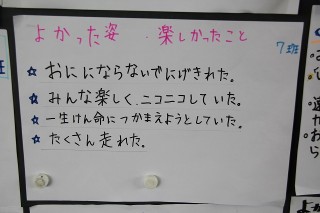 よかった姿 ・楽しかったこと
7班
☆おににならないでにげきれた。
☆みんな楽しく、ニコニコしていた。
☆一生けん命につかまえようとしていた。
☆たくさん走れた。
班